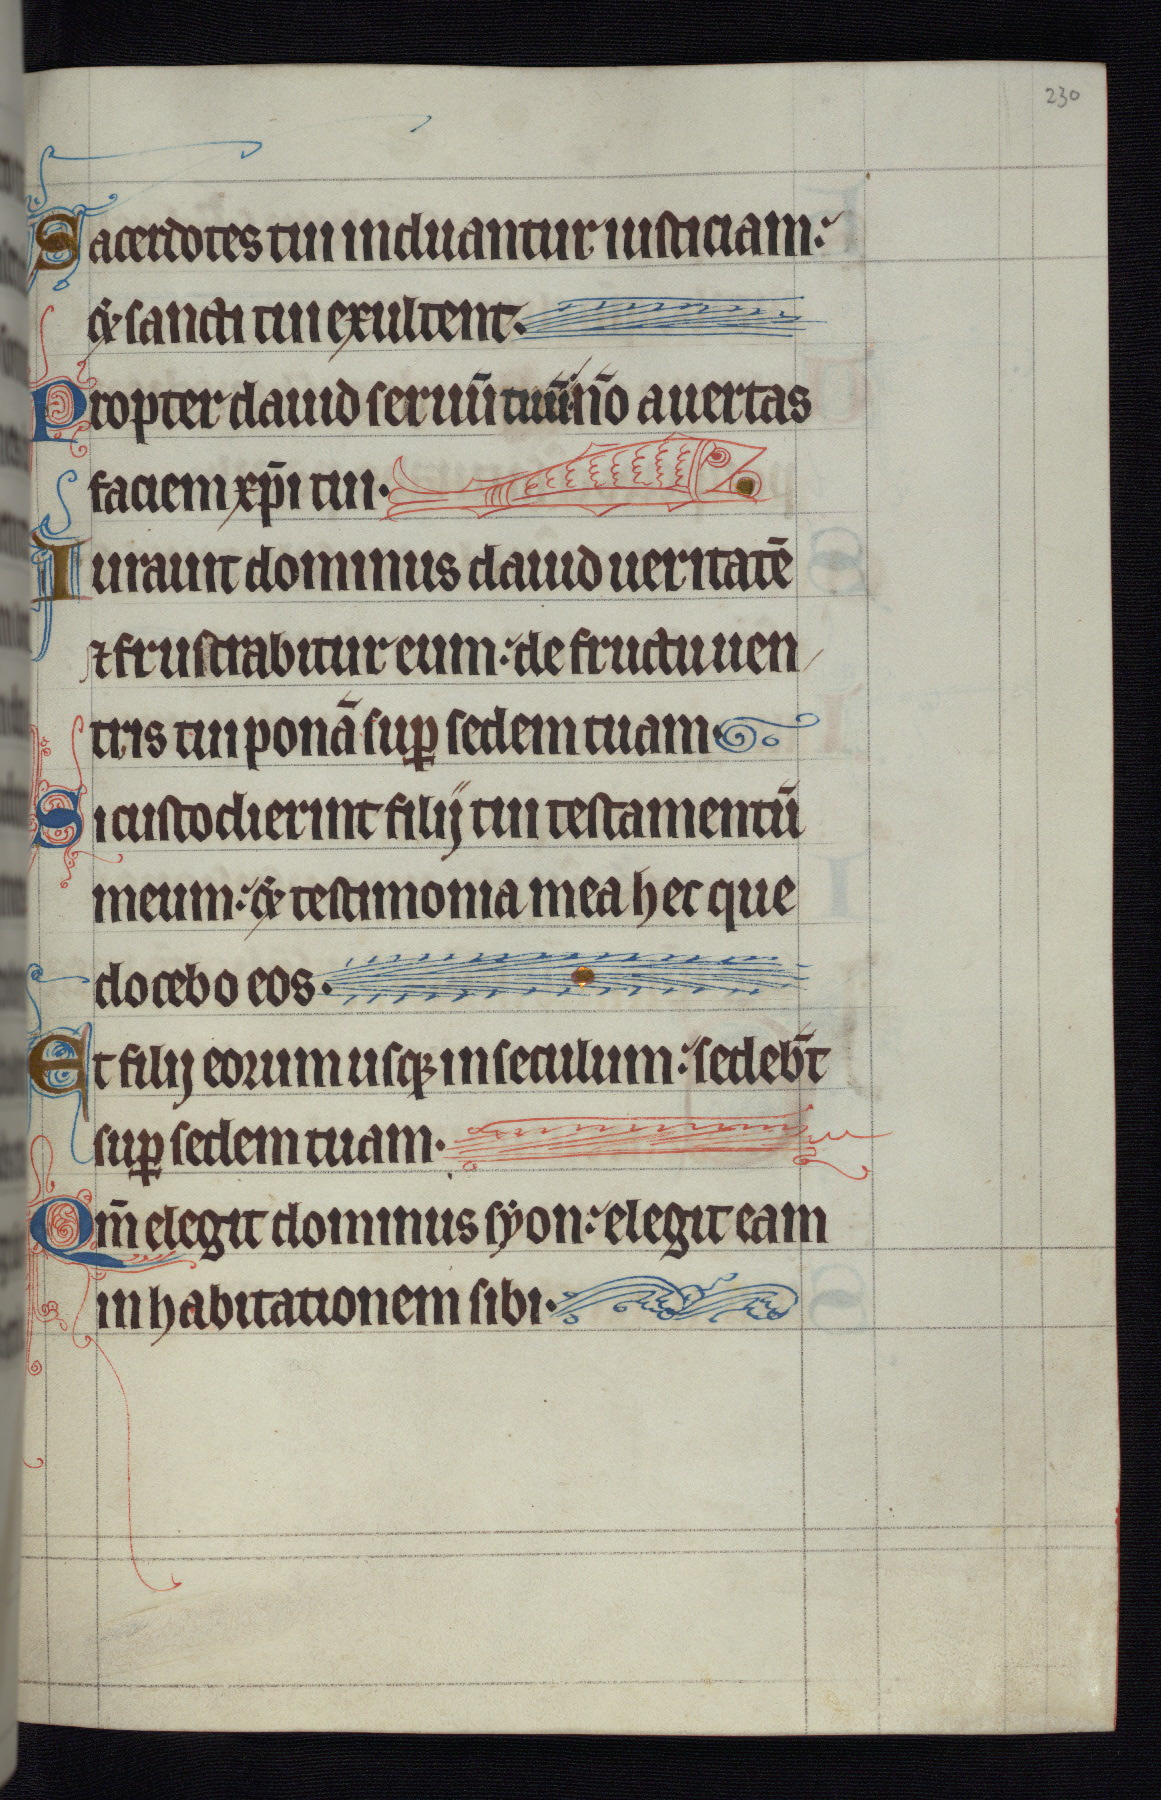 230
Sacerdotes tui induantur iusticiam:
& sancti tui exultent.
Propter dauid seruū tuū: nō auertas
faciem xp̄i tui.
Iurauit dominus dauid ueritatē
⁊ frustrabitur eum: de fructu uen
tris tui ponā suꝑ sedem tuam.
Si custodierint filij tui testamentū
meum: & testimonia mea hec que
docebo eos.
Et filij eorum usqꝫ in seculum: sedeb̄t
suꝑ sedem tuam.
Qm̄ elegit dominus syon: elegit eam
in habitationem sibi.